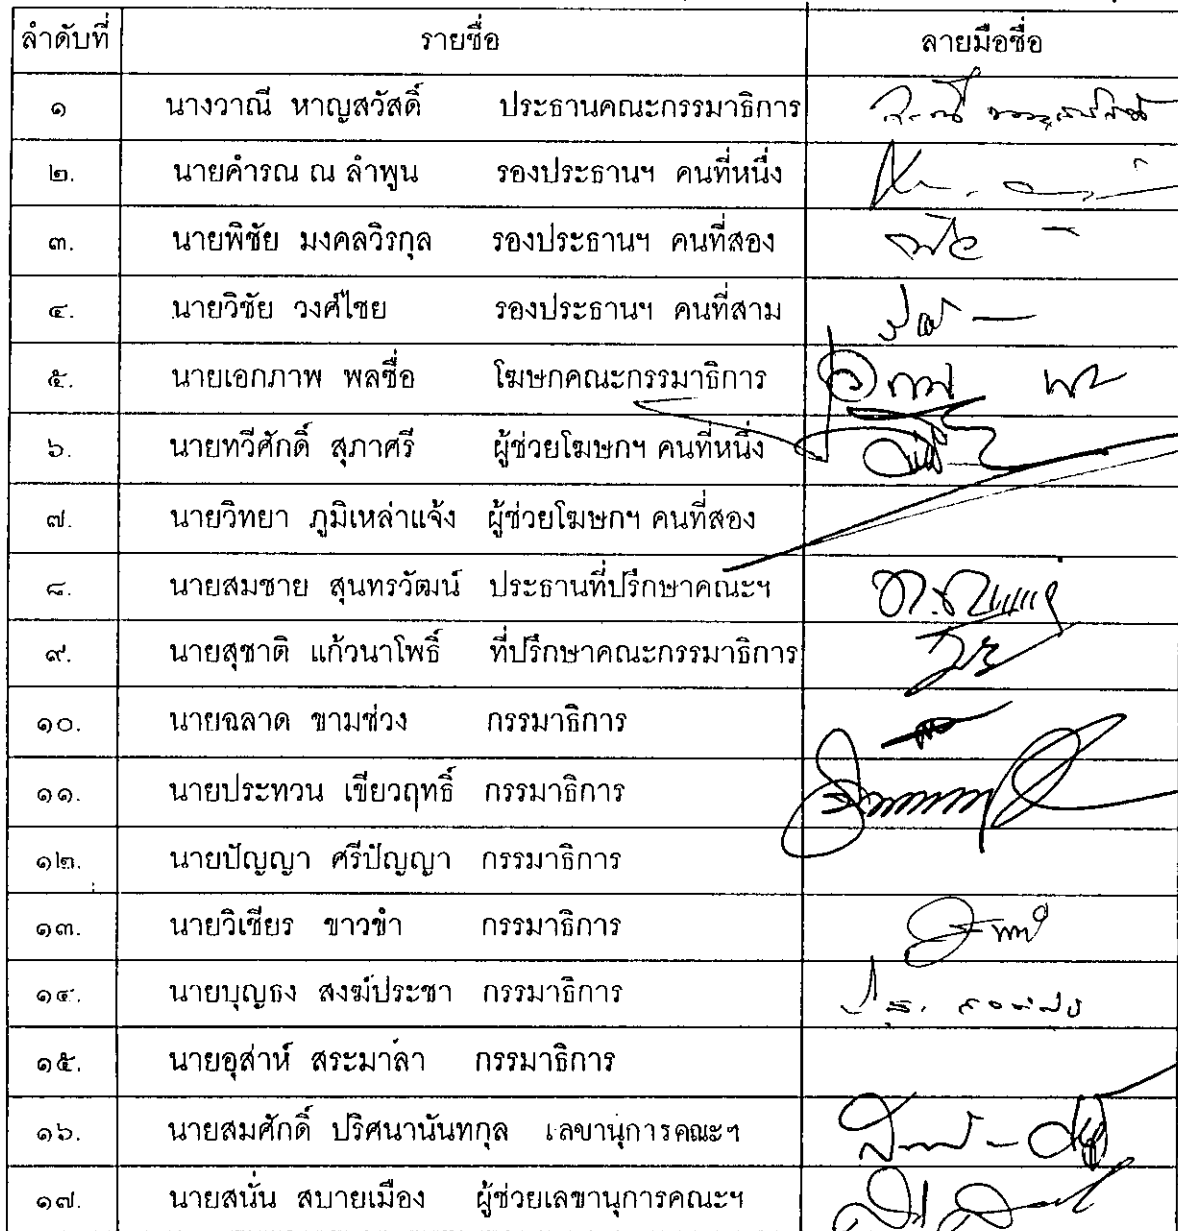 ลำดับที่ รายชื่อ ลายมือชื่อ
๑ นางวาณี หาญสวัสดิ์ ประธานคณะกรรมาธิการ
๒. นายคำรณ ณ ลำพูน รองประธานฯ คนที่หนึ่ง
๓. นายพิชัย มงคลวิรกุล รองประธานฯ คนที่สอง
๔. นายวิชัย วงศ์ไชย รองประธานฯ คนที่สาม
๕. นายเอกภาพ พลซื่อ โฆษกคณะกรรมาธิการ
๖. นายทวีศักดิ์ สุภาศรี ผู้ช่วยโฆษกฯ คนที่หนึ่ง
๗. นายวิทยา ภูมิเหล่าแจ้ง ผู้ช่วยโฆษกฯ คนที่สอง
๘. นายสมชาย สุนทรวัฒน์ ประธานที่ปรึกษาคณะฯ
๙. นายสุชาติ แก้วนาโพธิ์ ที่ปรึกษาคณะกรรมาธิการ
๑๐. นายฉลาด ขามช่วง กรรมาธิการ
๑๑. นายประทวน เขียวฤทธิ์ กรรมาธิการ
๑๒. นายปัญญา ศรีปัญญา กรรมาธิการ
๑๓. นายวิเชียร ขาวขำ กรรมาธิการ
๑๔. นายบุญธง สงฆ์ประชา กรรมาธิการ
๑๕. นายอุส่าห์ สระมาลา กรรมาธิการ
๑๖. นายสมศักดิ์ ปริศนานันทกุล เลขานุการคณะฯ
๑๗. นายสนั่น สบายเมือง ผู้ช่วยเลขานุการคณะฯ